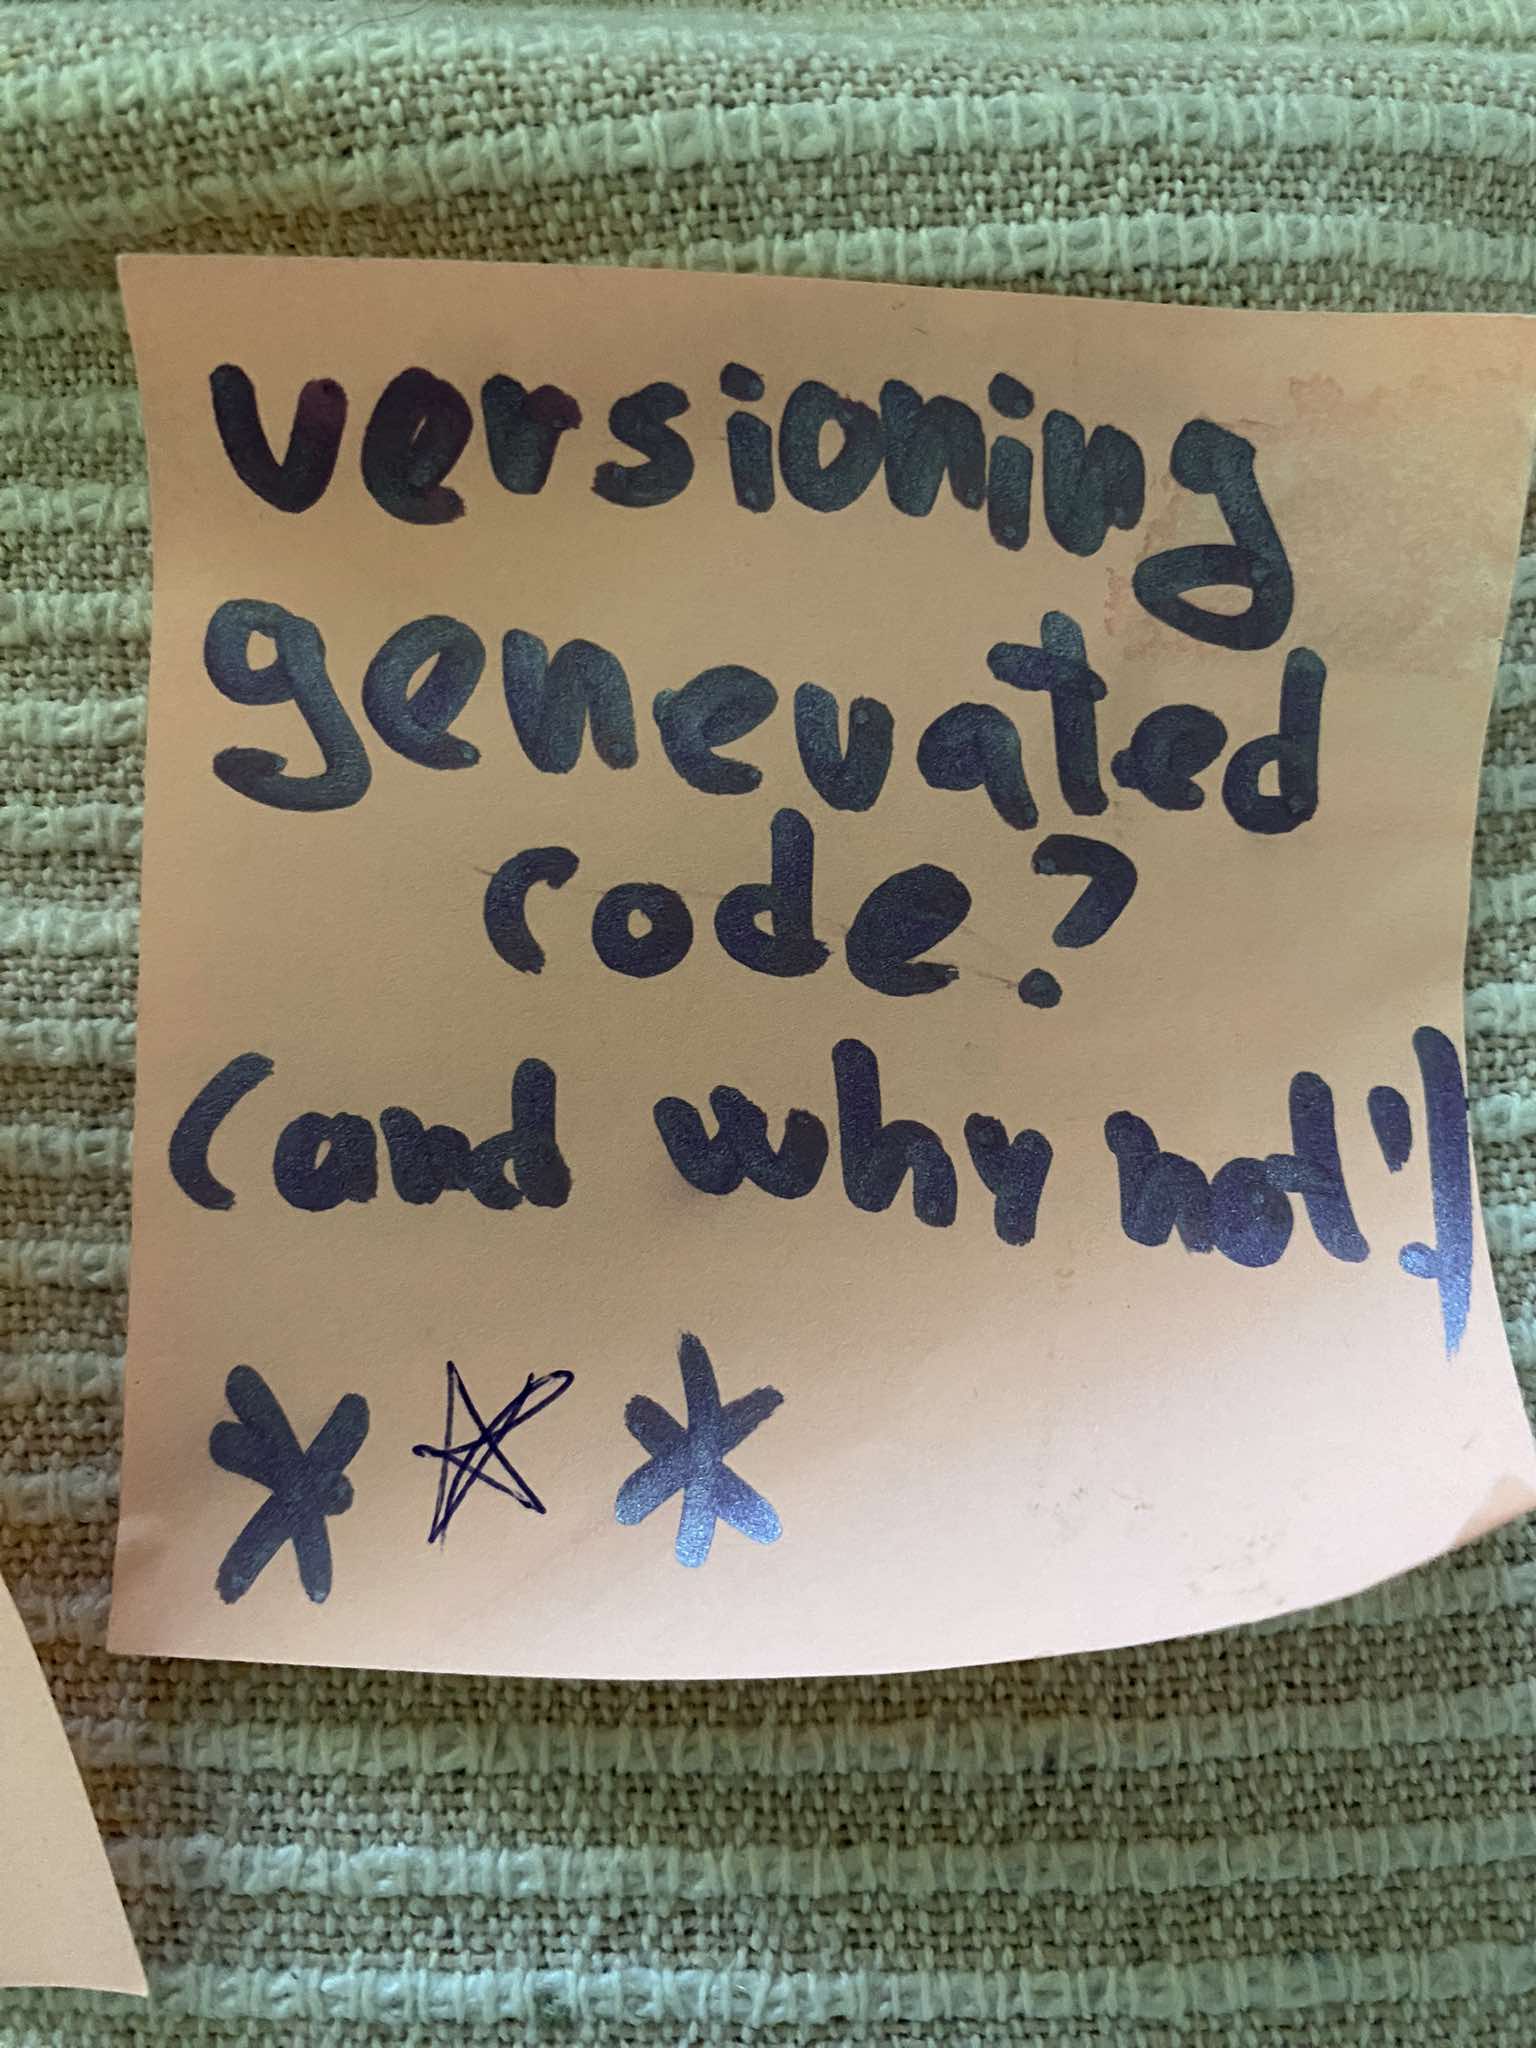 versioning
generated
code?
(and why not!)
* ☆ *